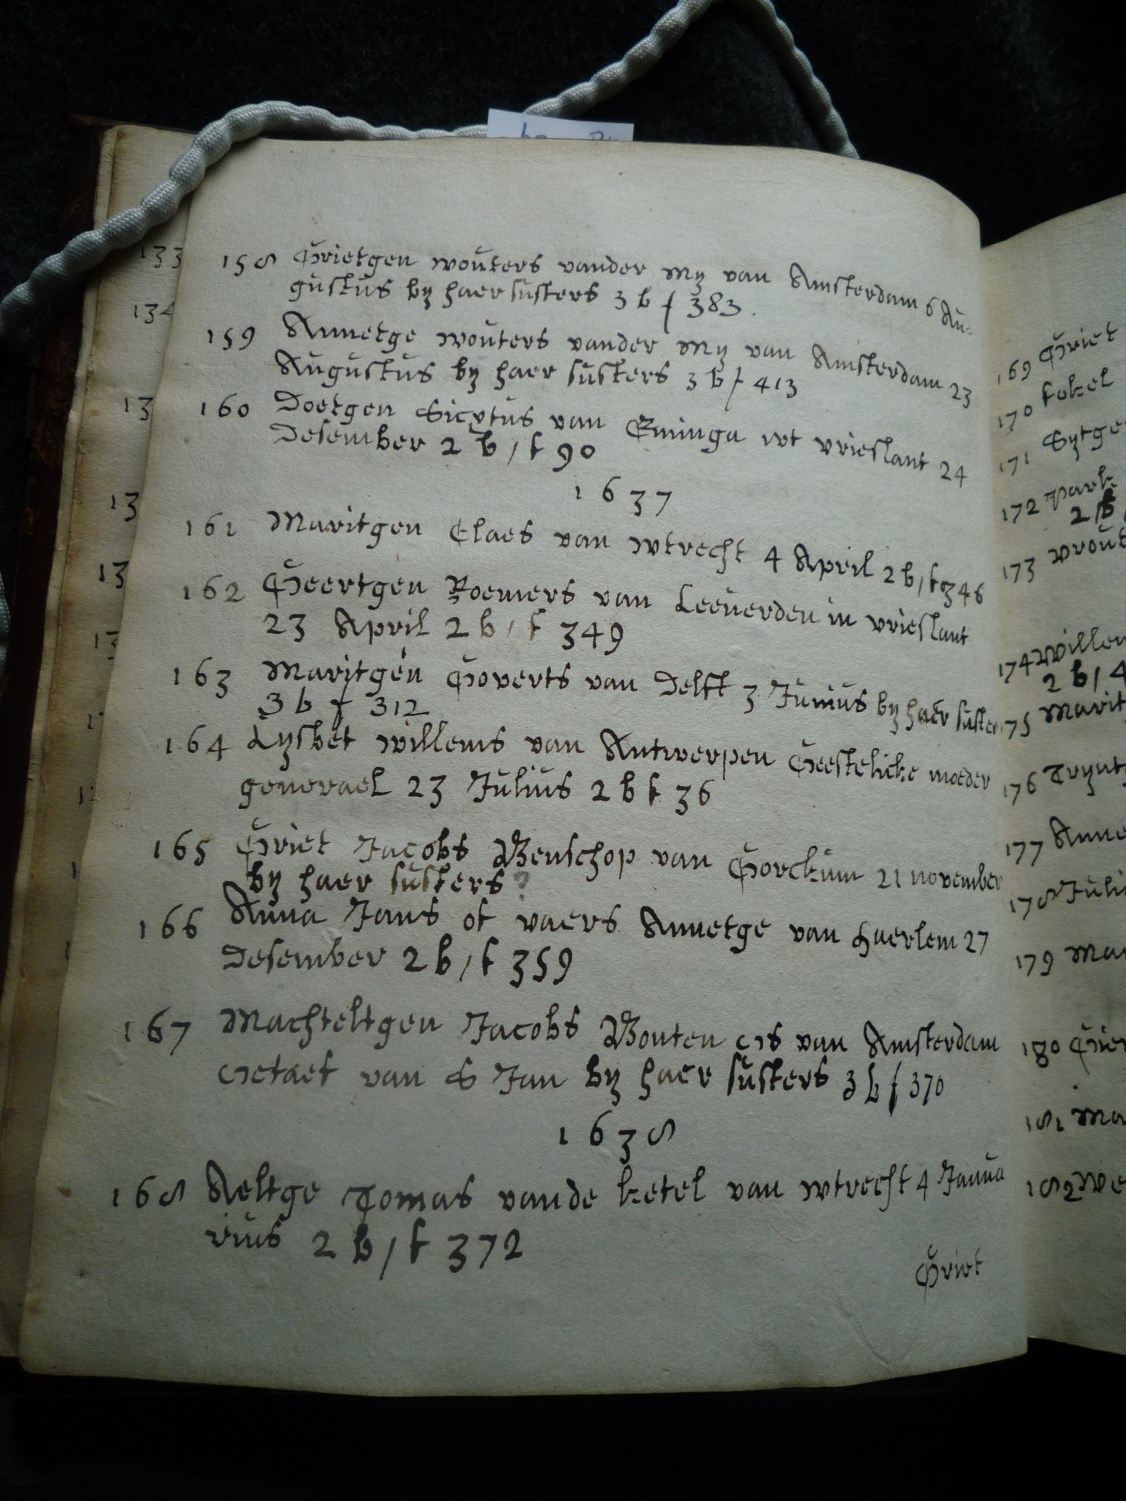 158 Grietgen wouters vander my van Amsterdam 6 Au-
gustus by haer susters 3 b f 383.
159 Annetge wouters vander my van Amsterdam 23
Augustus by haer susters 3 b f 413
160 Doetgen Sicxtus van Eminga wt vrieslant 24
Desember 2 b / f 90
1637
161 Maritgen Claes van wtrecht 4 April 2 b / f 346
162 Geertgen Roemers van Leeuerden in vrieslant
23 April 2 b / f 349
163 Maritgen Goverts van Delft 3 Junius by haer suster
3 b f 312
164 Lysbet willems van Antwerpen Geestelicke moeder
generael 23 Julius 2 b f 36
165 Griet Jacobs Benschop van Gorckum 21 november
by haer susters
166 Anna Jans of vaers Annetge van haerlem 27
Desember 2 b / f 359
167 Machteltgen Jacobs van Amsterdam
van S Jan by haer susters 3 b f 370
1638
168 Aeltge Tomas vande ketel van wtrecht 4 Janua
rius 2 b / f 372
Griet
133
134
13
13
13
13
169 Griet
170 fokel
171 Sytge
172
2 b
173 wout
174 willem
2 b / 4
75 Marit
176 Trynt
177 Anne
178 Juli
179 Ma
180 Grie
181 Ma
182 We